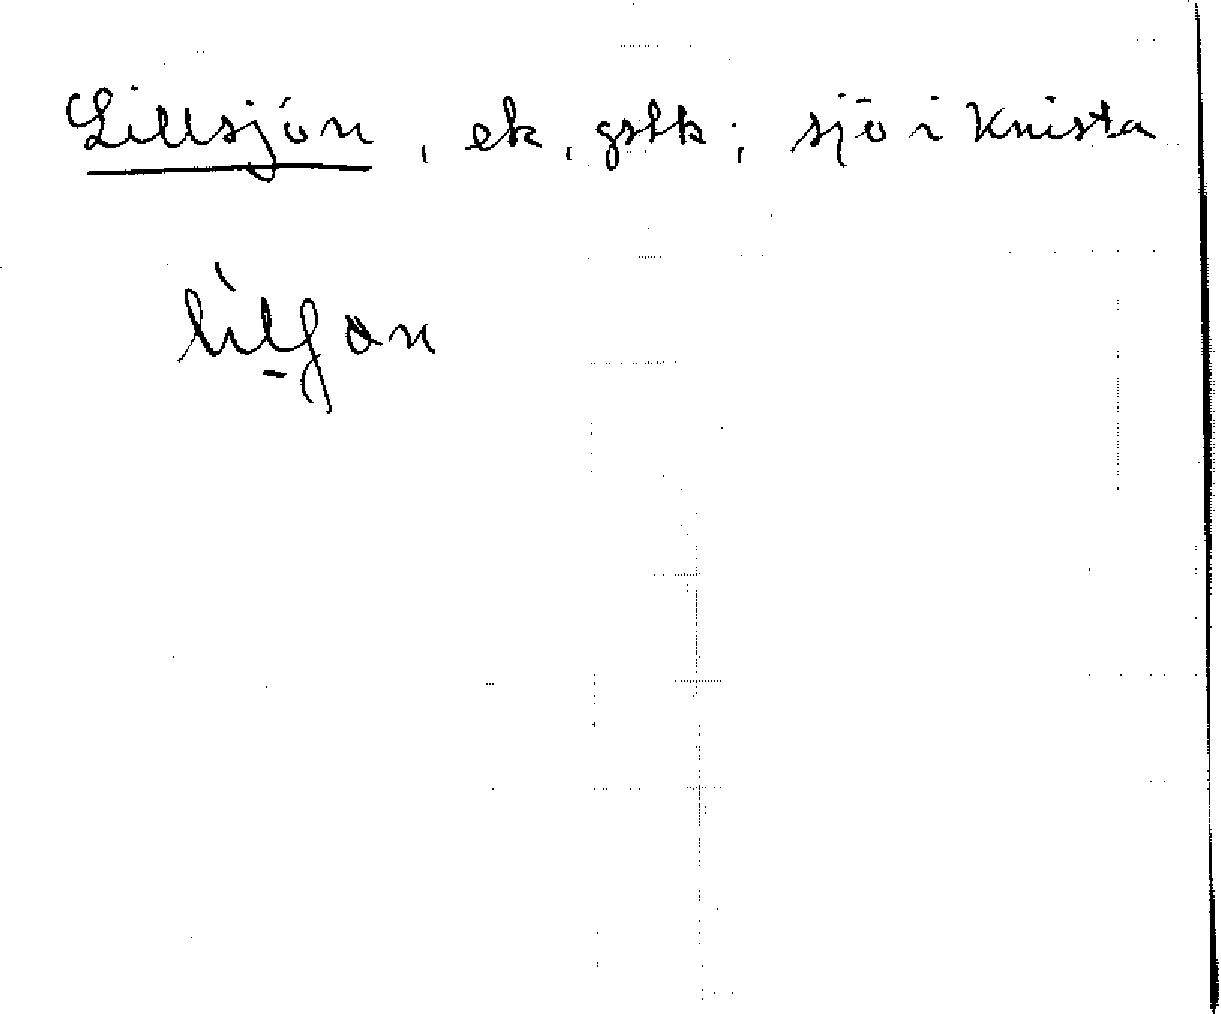 Lillsjön, ek, gstk; sjö i Knista